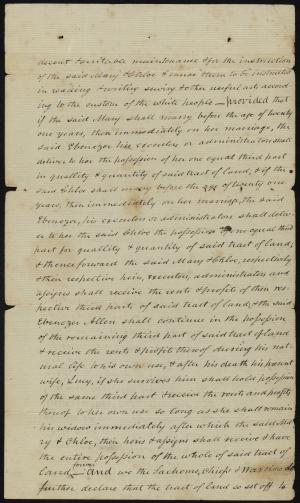 decent & suitable maintenance & for the instruction
of the said Mary & Chloe & cause them to be instructed
in reading & writing sewing & other useful arts accord
ing to the custom of the white people – provided that
if the said Mary shall marry before the age of twenty
one years, then immediately on her marriage, the
said Ebenezer his executors or administrators shall
deliver to her the possession of her one equal third part
in quallity & quantity of said tract of land, & if the
said Chloe shall marry before the age of twenty one
years, then immediately on her marriage, the said
Ebenezer, his executors or administrators shall deliv-
er to her the said Chloe the possession of one equal third
part for quallity & quantity of said tract of land,
& thence forward the said Mary & Chloe, respectively
& their respective heirs, executors, administrators and
assigns shall receive the rents & profits of their res-
pective third parts of said tract of land, & the said
Ebenezer Allen shall continue in the possession
of the remaining third part of said tract of land
& receive the rents & profits thereof during his nat
ural life to his own use, & after his death his present
wife, Lucy, if she survives him shall hold possession
of the same third part & receive the rents and profits
thereof to her own use so long as she shall remain
his widow immediately after which the said Ma-
ry & Chloe, their heirs & assigns shall receive & have
the entire possession of the whole of said tract of
Land forever And we the Sachems, Chiefs & Warriors do
further declare that the tract of land so set off to